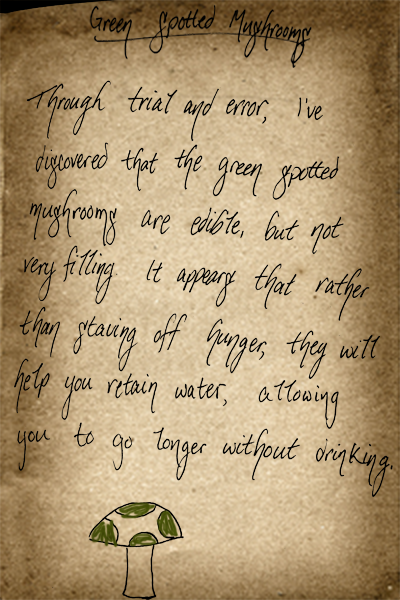 Green Spotted Mushrooms
Through trial and error, I've
discovered that the green spotted
mushrooms are edible, but not
very filling It appears that rather
than staving off hunger, they will
help you retain water, allowing
you to go longer without drinking.